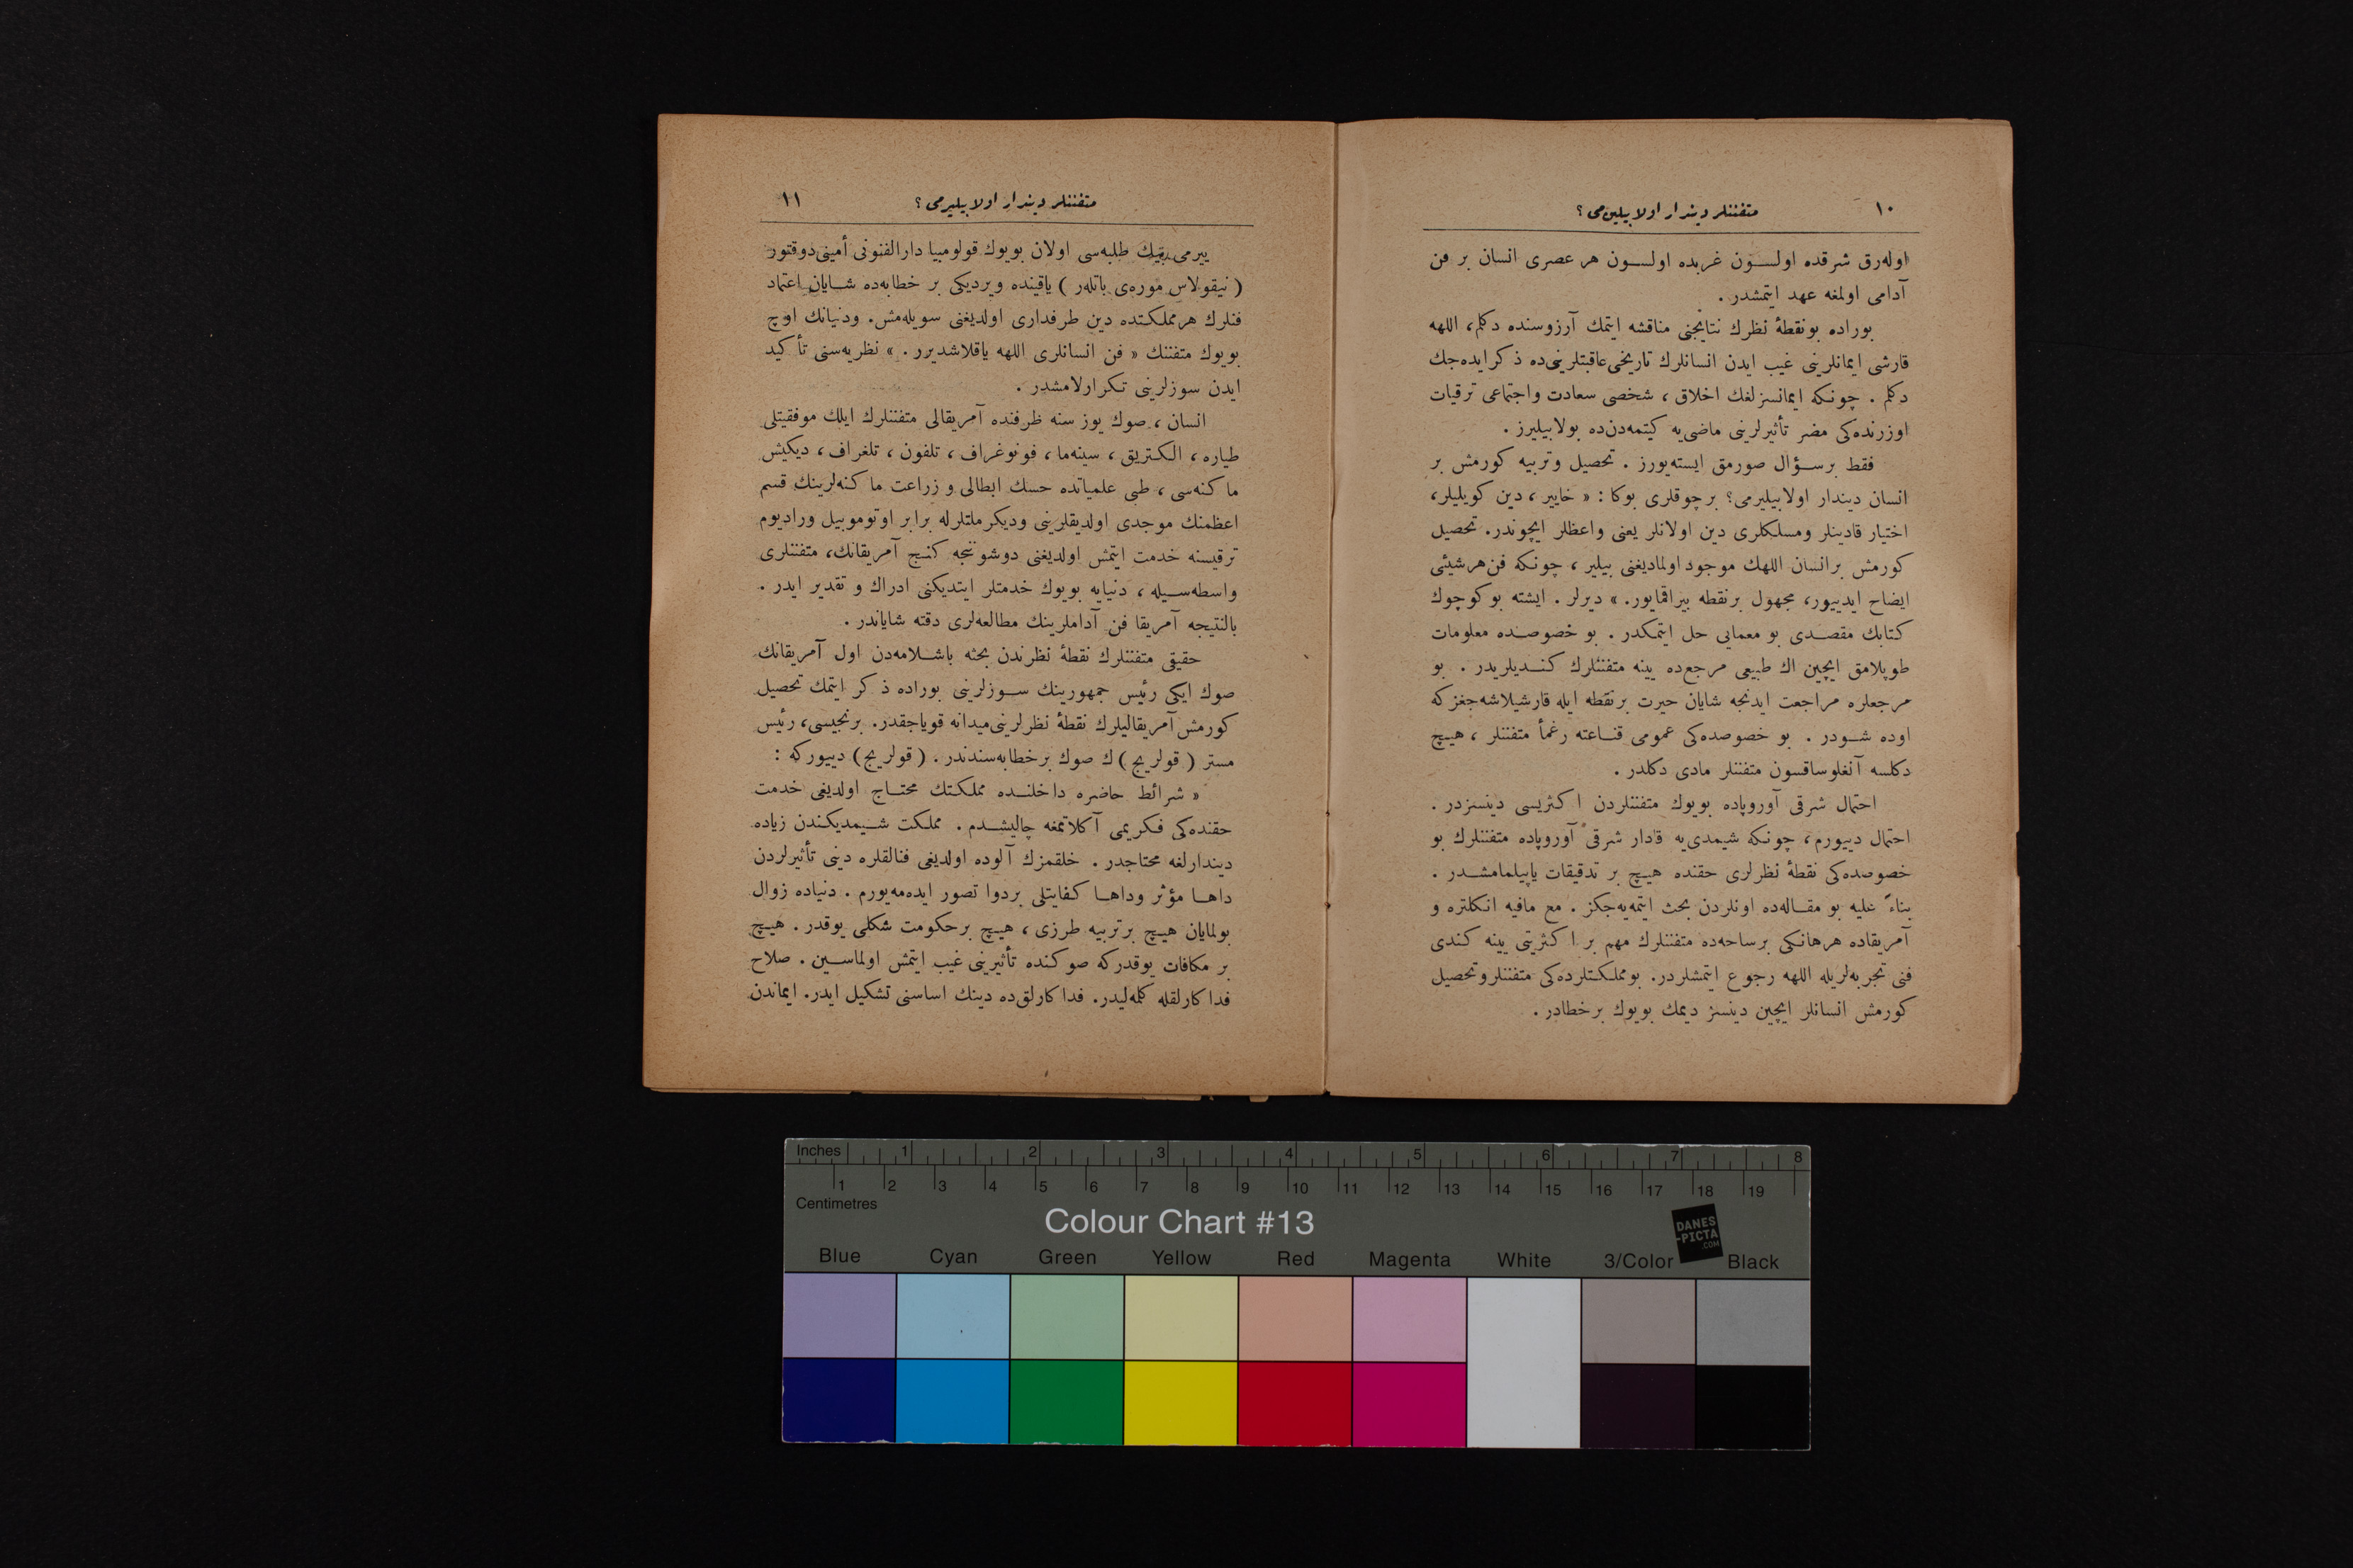 ١٠
متفننلر دیندار اولابیلیرمی؟
اوله‌رق شرقده اولسون غربده اولسون هر عصری انسان بر فن
آدامی اولمغه عهد ایتمشدر .
بوراده بونقطهٔ نظرك نتایجنی مناقشه ایتمك آرزوسنده دکلم، اللهه
قارشی ایمانلرینی غیب ایدن انسانلرك تاریخی عاقبتلرینی‌ده ذکر ایده‌جك
دکلم . چونکه ایمانسزلغك اخلاق ، شخصی سعادت واجتماعی ترقیات
اوزرنده‌کی مضر تأثیرلرینی ماضی‌یه کیتمه‌دن‌ده بولابیلیرز .
فقط برسؤال صورمق ایسته‌یورز . تحصیل وتربیه کورمش بر
انسان دیندار اولابیلیرمی؟ برچوقلری بوکا : « خایر ، دین کویلیلر،
اختیار قادینلر ومسلکلری دین اولانلر یعنی واعظلر ایچوندر. تحصیل
کورمش برانسان اللهك موجود اولمادیغنی بیلیر ، چونکه فن هرشیئی
ایضاح ایدییور، مجهول برنقطه بیراقمایور. » دیرلر . ایشته بوکوچوك
کتابك مقصدی بو معمایی حل ایتمکدر . بو خصوصده معلومات
طوپلامق ایچین اك طبیعی مرجع‌ده یینه متفننلرك کندیلریدر . بو
مرجعلره مراجعت ایدنجه شایان حیرت برنقطه ایله قارشیلاشه‌جغزکه
اوده شودر . بو خصوصده‌کی عمومی قناعته رغماً متفننلر ، هیچ
دکلسه آنغلوساقسون متفننلر مادی دکلدر .
احتمال شرقی آوروپاده بویوك متفننلردن اکثریسی دینسزدر .
احتمال دییورم، چونکه شیمدی‌یه قادار شرقی آوروپاده متفننلرك بو
خصوصده‌کی نقطهٔ نظرلری حقنده هیچ بر تدقیقات یاپیلمامشدر .
بناءً علیه بو مقاله‌ده اونلردن بحث ایتمه‌یه‌جکز . مع مافیه انکلتره و
آمریقاده هرهانکی برساحه‌ده متفننلرك مهم بر اکثریتی یینه کندی
فنی تجربه‌لریله اللهه رجوع ایتمشلردر. بومملکتلرده‌کی متفننلروتحصیل
کورمش انسانلر ایچین دینسز دیمك بویوك برخطادر .
متفننلر دیندار اولابیلیرمی؟
١١
ییرمی بیك طلبه‌سی اولان بویوك قولومبیا دارالفنونی أمینی دوقتور
( نیقولاس موره‌ی باتلەر ) یاقینده ویردیکی بر خطابه‌ده شایان اعتماد
فنلرك هرمملکتده دین طرفداری اولدیغنی سویله‌مش. ودنیانك اوچ
بویوك متفننك « فن انسانلری اللهه یاقلاشدیرر . » نظریه‌سنی تأکید
ایدن سوزلرینی تکرارلامشدر .
انسان ، صوك یوز سنه ظرفنده آمریقالی متفننلرك ایلك موفقیتلی
طیاره ، الکتریق ، سینه‌ما ، فونوغراف ، تلفون ، تلغراف ، دیکیش
ماکنه‌سی ، طبی علمیاتده حسك ابطالی و زراعت ماکنه‌لرینك قسم
اعظمنك موجدی اولدیقلرینی ودیکر ملتلرله برابر اوتوموبیل ورادیوم
ترقیسنه خدمت ایتمش اولدیغنی دوشوننجه کنج آمریقانك، متفننلری
واسطه‌سیله ، دنیایه بویوك خدمتلر ایتدیکنی ادراك و تقدیر ایدر .
بالنتیجه آمریقا فن آداملرینك مطالعه‌لری دقته شایاندر .
حقیقی متفننلرك نقطهٔ نظرندن بحثه باشلامه‌دن اول آمریقانك
صوك ایکی رئیس جمهورینك سوزلرینی بوراده ذکر ایتمك تحصیل
کورمش آمریقالیلرك نقطهٔ نظرلرینی میدانه قویاجقدر. برنجیسی، رئیس
مستر ( قولریج )ك صوك برخطابه‌سندندر . ( قولریج ) دییورکه :
« شرائط حاضره داخلنده مملکتك محتاج اولدیغی خدمت
حقنده‌کی فکریمی آکلاتمغه چالیشدم . مملکت شیمدیکندن زیاده
دیندارلغه محتاجدر . خلقمزك آلوده اولدیغی فنالقلره دینی تأثیرلردن
داها مؤثر وداها کفایتلی بردوا تصور ایده‌مه‌یورم . دنیاده زوال
بولمایان هیچ برتربیه طرزی ، هیچ برحکومت شکلی یوقدر . هیچ
بر مکافات یوقدرکه صوکنده تأثیرینی غیب ایتمش اولماسین . صلاح
فداکارلقله کلمه‌لیدر. فداکارلق‌ده دینك اساسنی تشکیل ایدر. ایماندن
Inches 1 2 3 4 5 6 7 8
1 2 3 4 5 6 7 8 9 10 11 12 13 14 15 16 17 18 19
Centimetres
Colour Chart #13
DANES
-PICTA
.COM
Blue Cyan Green Yellow Red Magenta White 3/Color Black